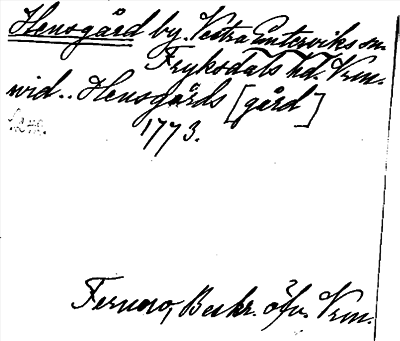 Hensgård by. Vestra Emterviks sn.
Fryksdals hd. Vrm.
vid.. Hensgårds [gård]
1773.
Fernow, Beskr. öfv. Vrm.